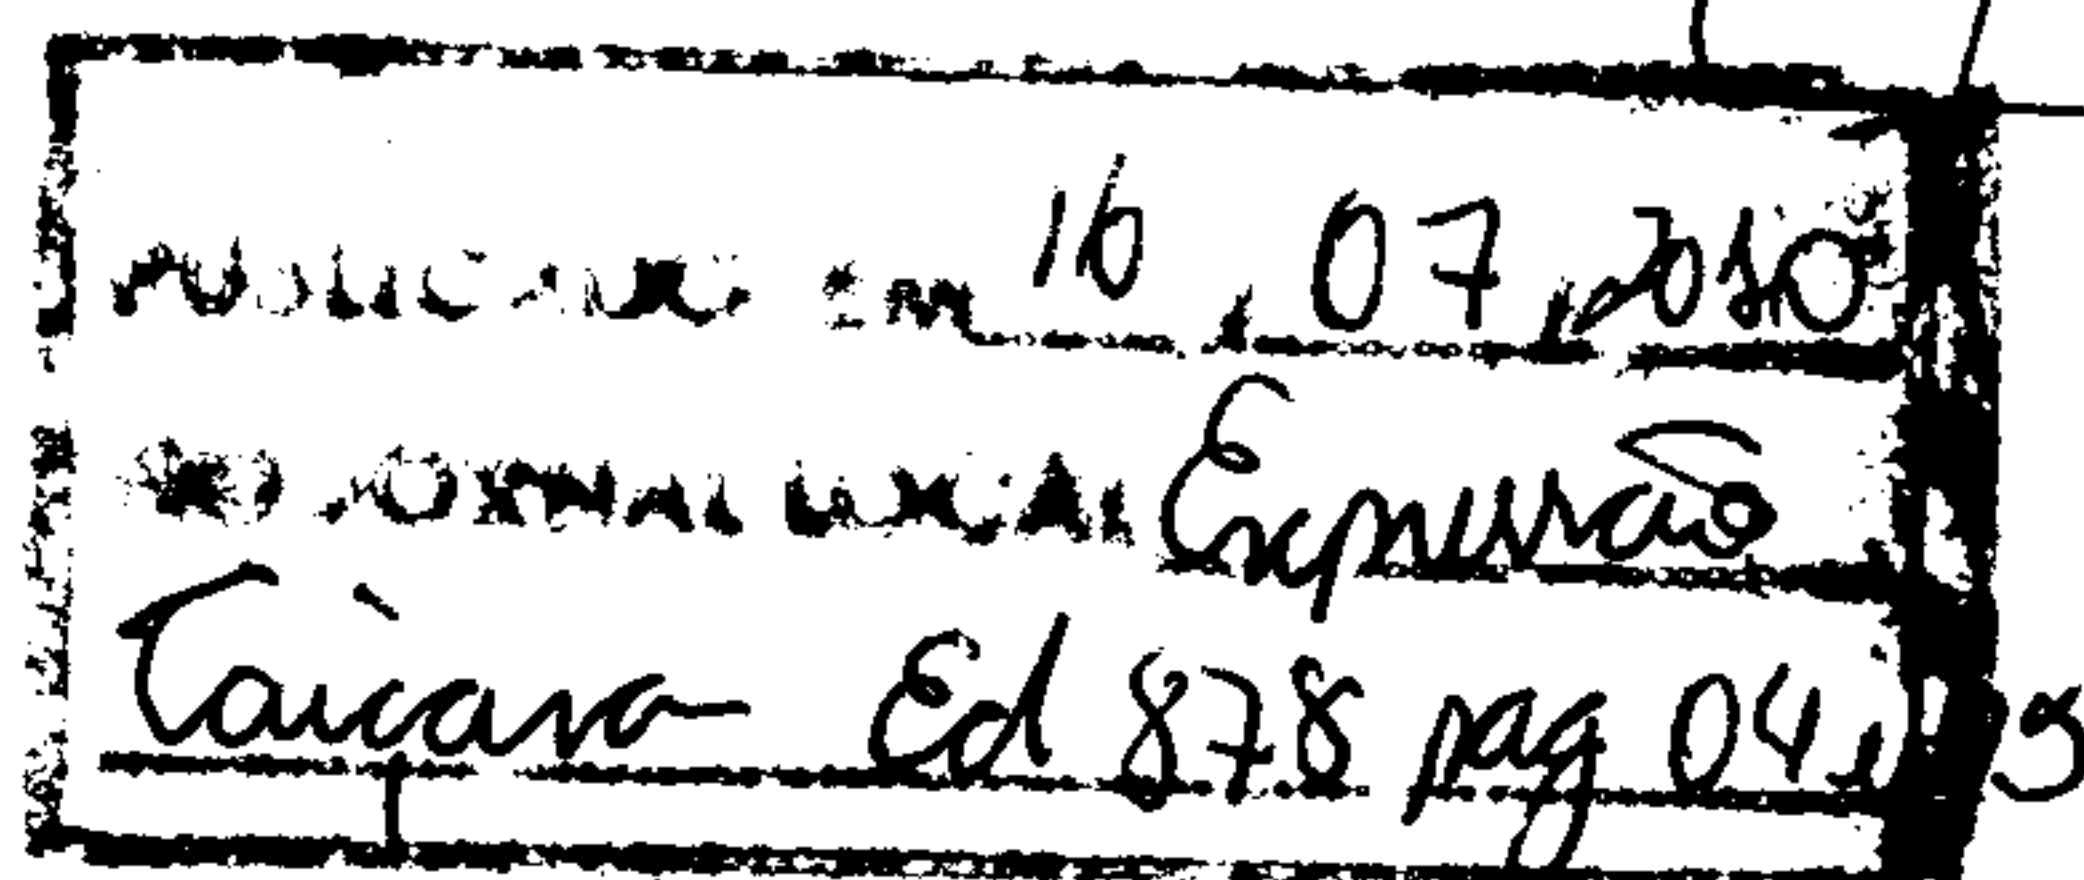 PUBLICADO EM 16, 07, 2010
NO JORNAL LOCAL Expressão
Caiçara Ed 878 pag 04 e 05